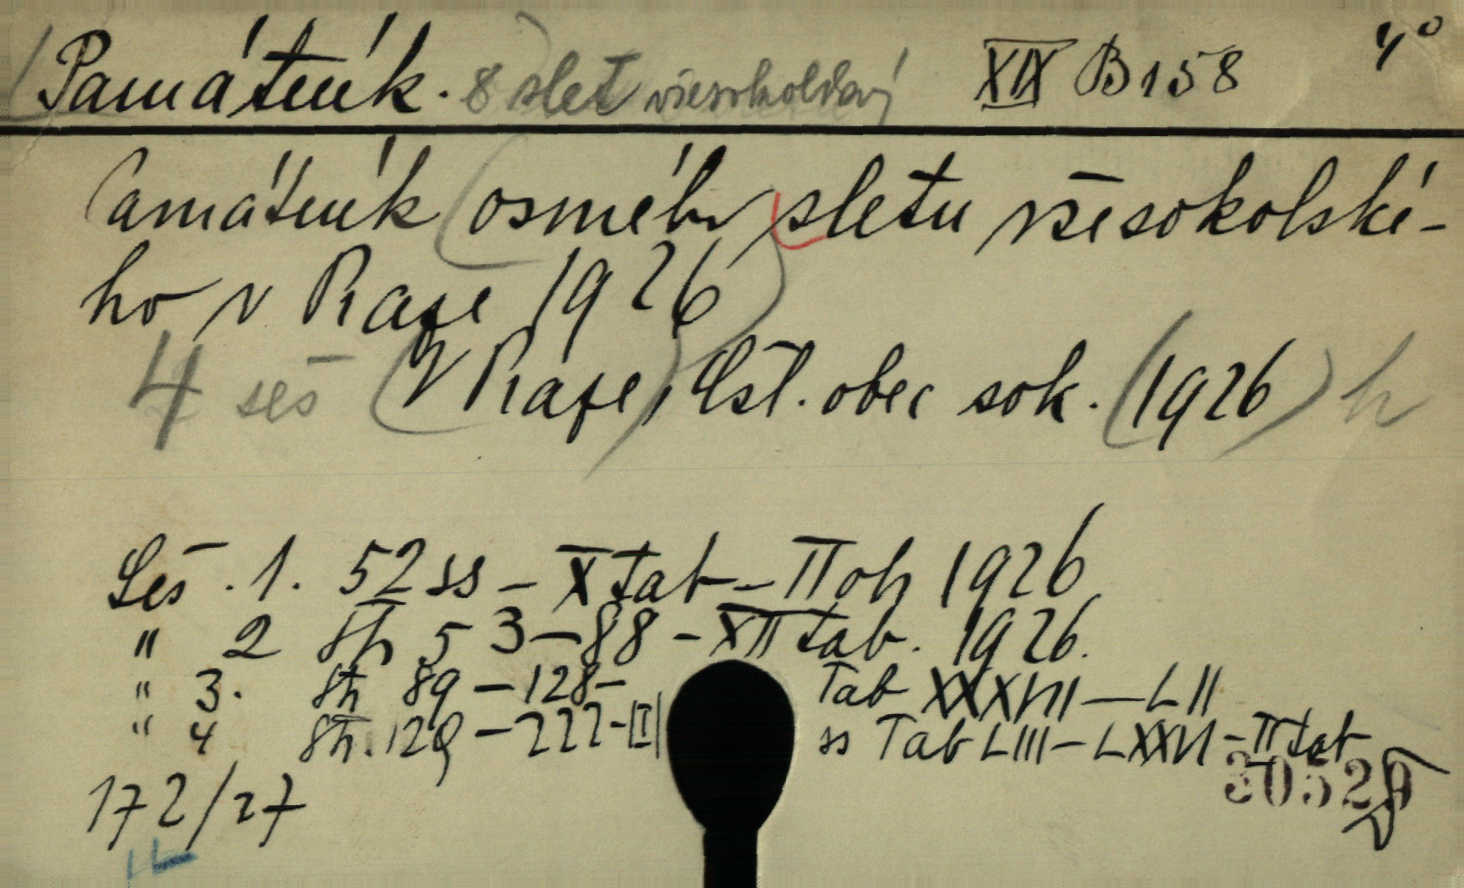 Památník. 8 slet všesokolský XIX B 158 4°
Památník (osmého sletu všesokolské-
ho v Praze 1926)
4 seš (V Praze), Čsl. obec sok. (1926) h
Seš. 1. 52 ss – X tab – II ob 1926
" 2 str 53–88 – XII tab. 1926.
" 3. str 89–128– Tab XXXVII–LII
" 4 str. 129–222–[I] ss Tab LIII–LXXVI–II tab
172/27
30529